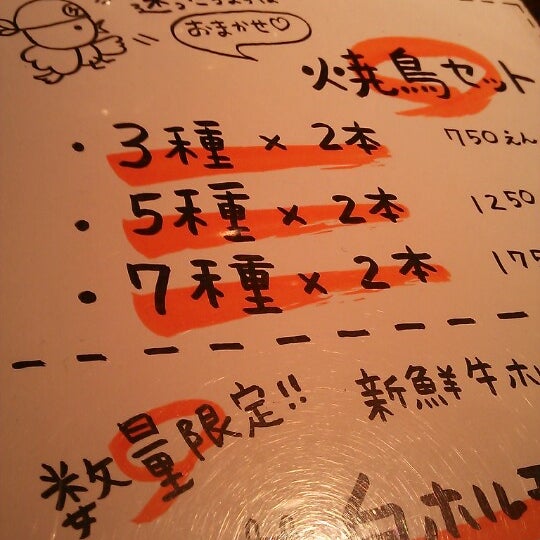 おまかせ♡
焼鳥セット
・3種 × 2本 750えん
・5種 × 2本 1250
・7種 × 2本 175
数量限定!! 新鮮牛ホ
ホルモ